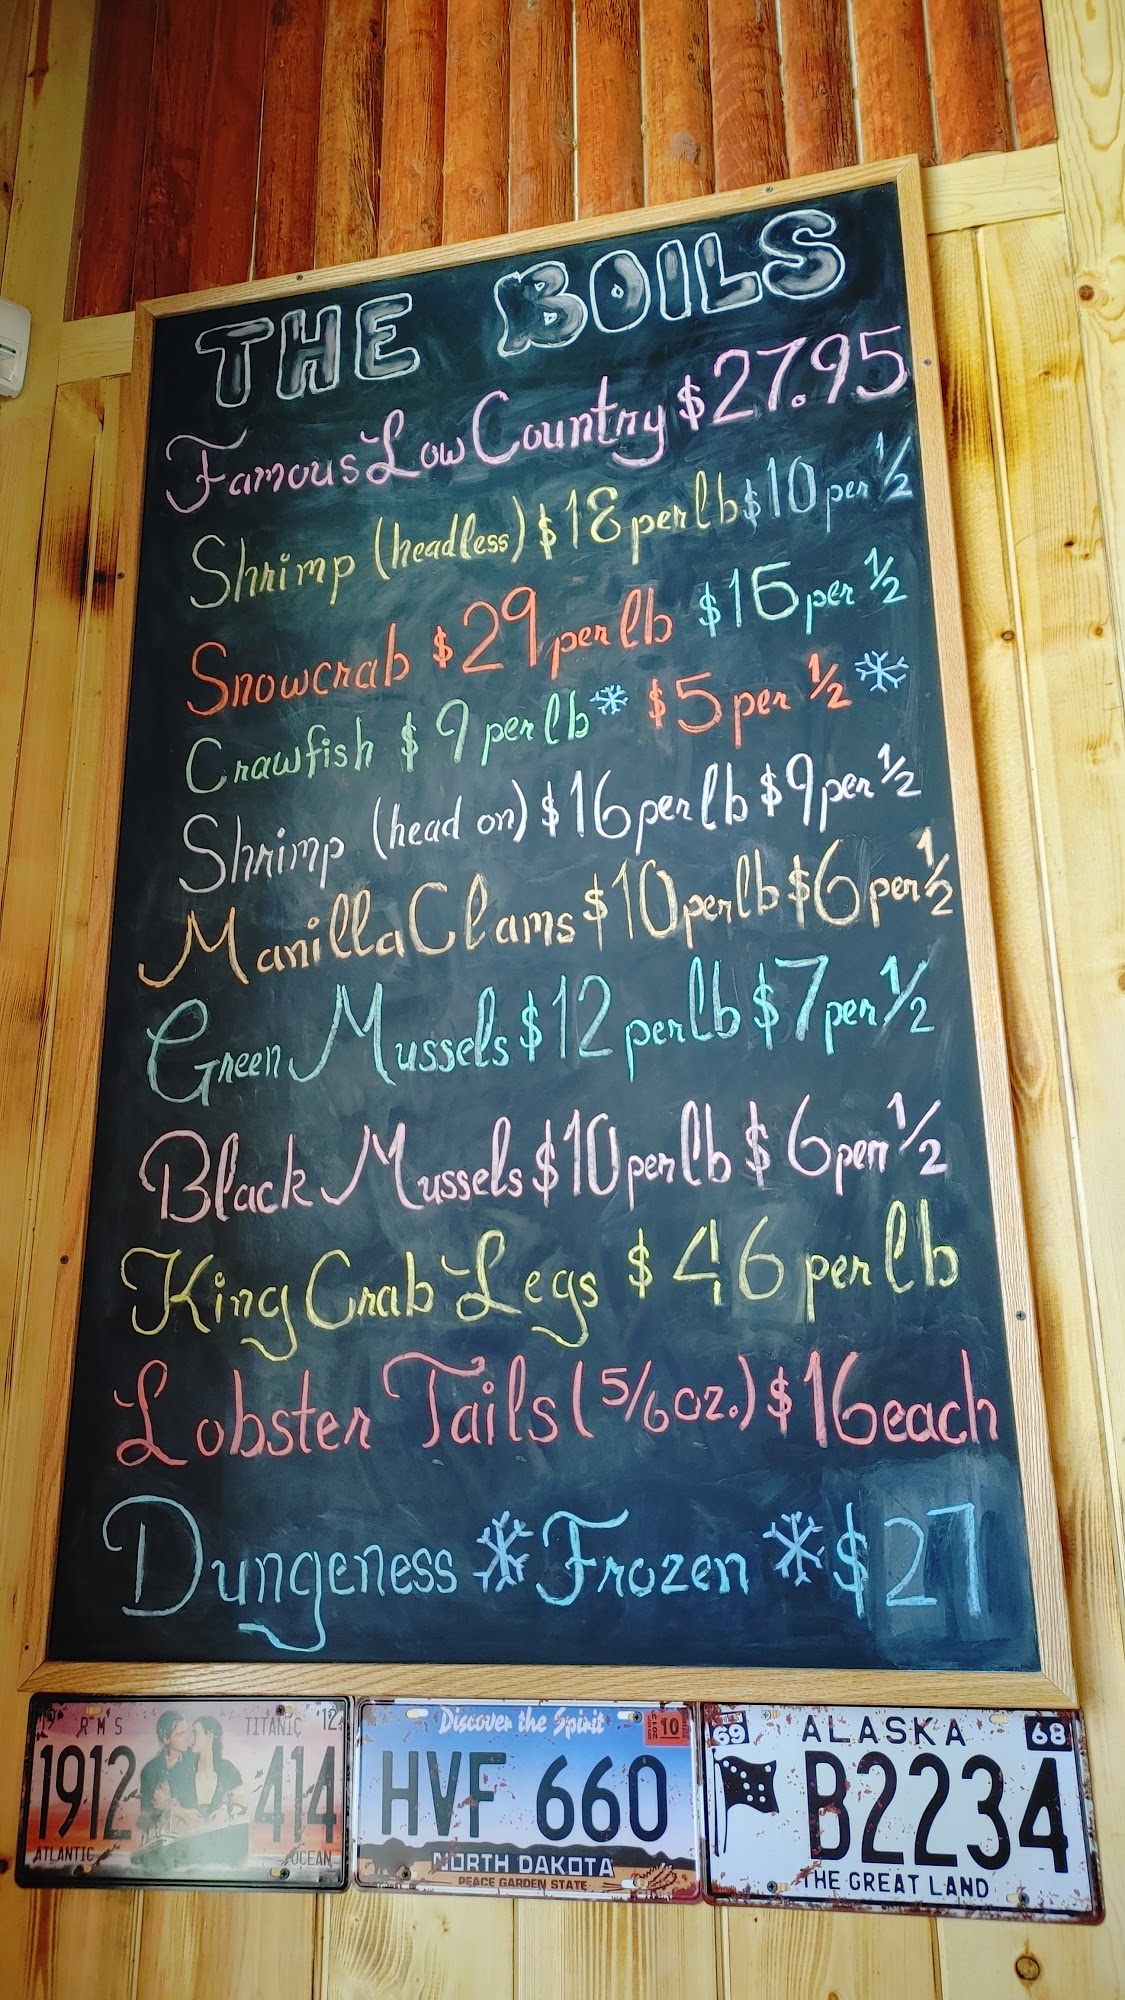 THE BOILS
Famous Low Country $27.95
Shrimp (headless) $18 per lb $10 per 1/2
Snowcrab $29 per lb $15 per 1/2
Crawfish $9 per lb $5 per 1/2
Shrimp (head on) $16 per lb $9 per 1/2
Manilla Clams $10 per lb $6 per 1/2
Green Mussels $12 per lb $7 per 1/2
Black Mussels $10 per lb $6 per 1/2
King Crab Legs $46 per lb
Lobster Tails (5/6 oz.) $16 each
Dungeness Frozen $27
19 RMS TITANIC 12
1912 414
ATLANTIC OCEAN
Discover the Spirit 10
HVF 660
NORTH DAKOTA
PEACE GARDEN STATE
69 ALASKA 68
B2234
THE GREAT LAND